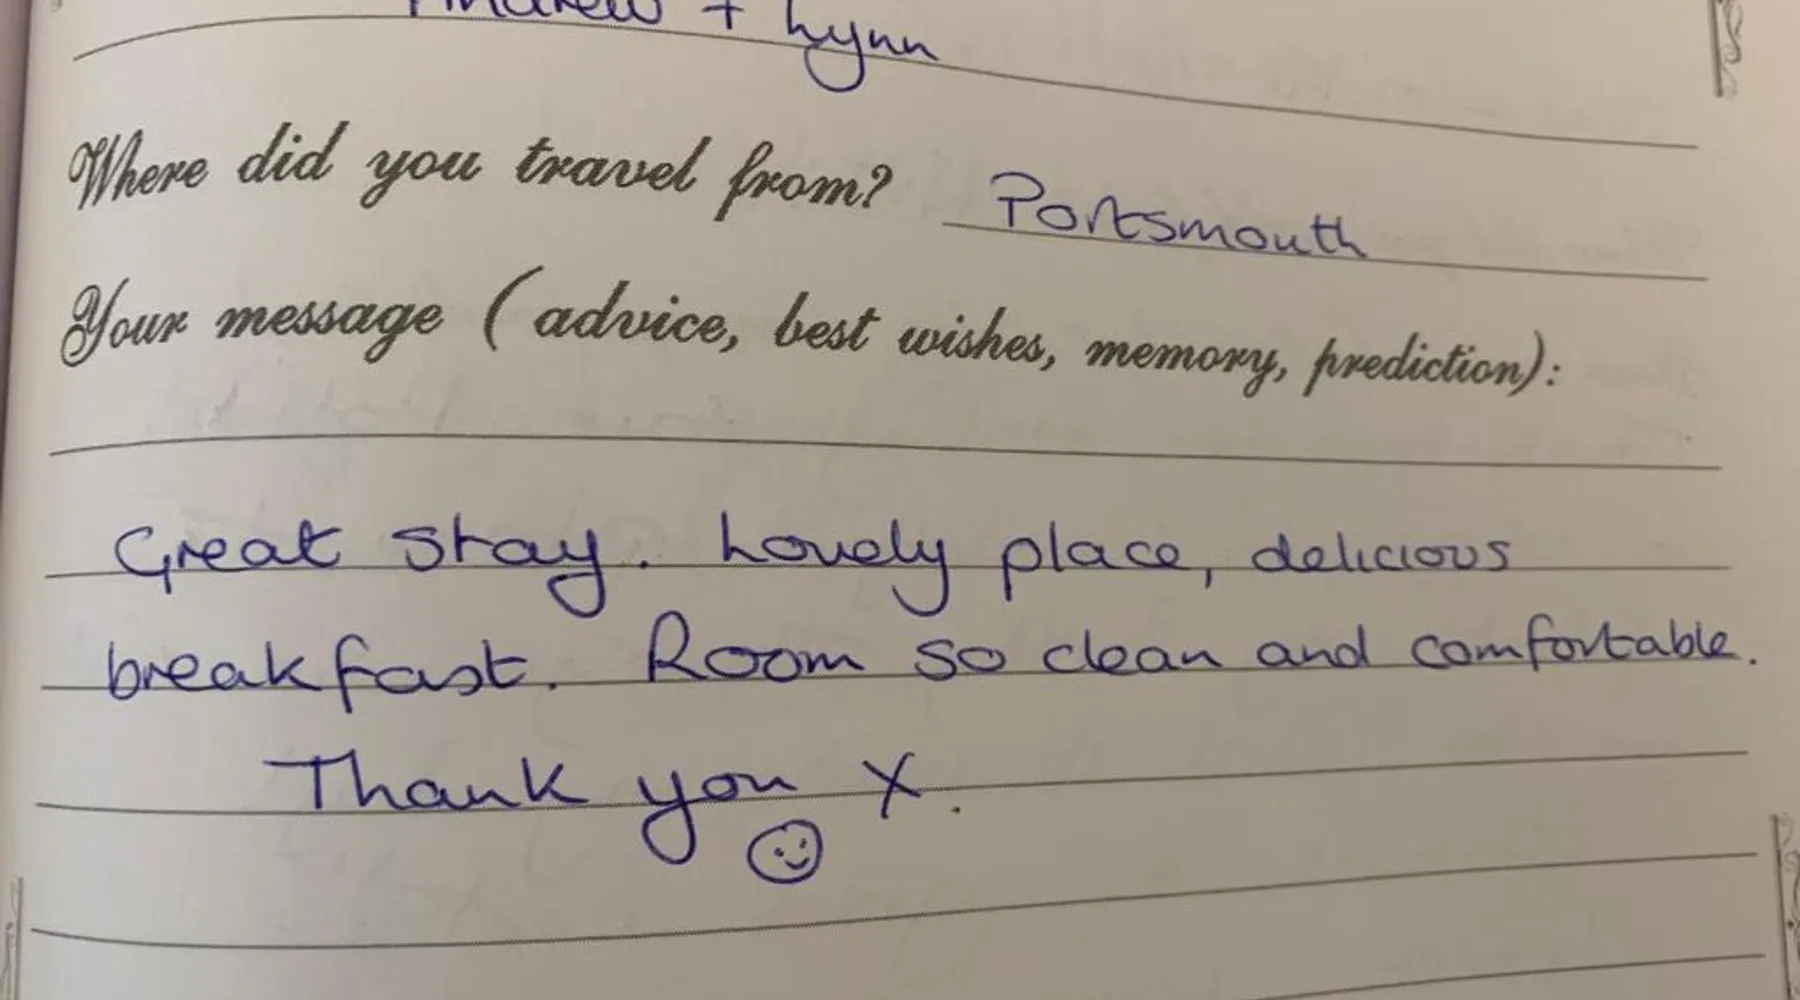 Andrew + Lynn
Where did you travel from? Portsmouth
Your message (advice, best wishes, memory, prediction):
Great stay. Lovely place, delicious
breakfast. Room so clean and comfortable.
Thank you x.